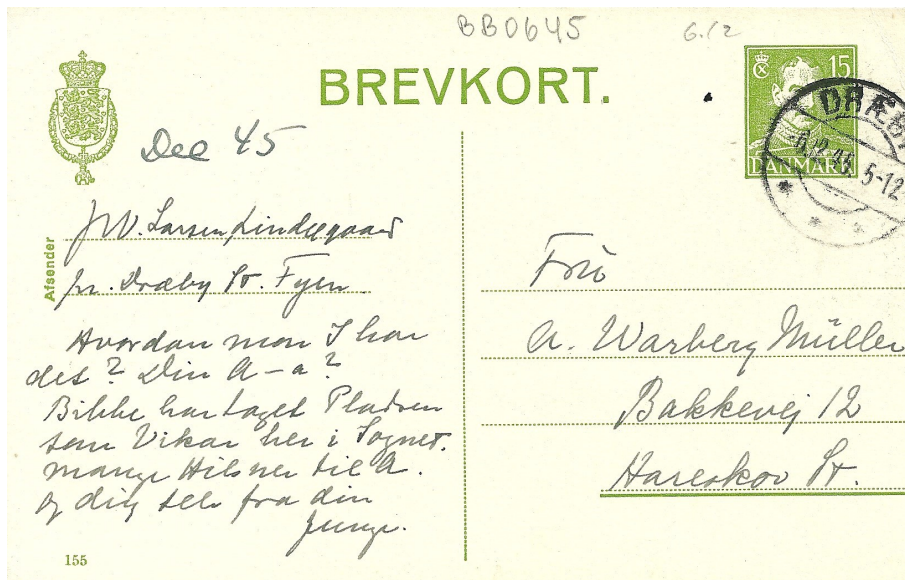 BB0645
6.12
BREVKORT.
15
DANMARK
DRÆBY
6.12.45. 5-12
Dec 45
Afsender
J.W. Larsen Lindegaard
pr. Dræby St. Fyen.
Hvordan mon I har
det? Din A-a?
Bibbe har taget Pladsen
som Vikar her i Sognet.
mange Hilsner til A.
og dig selv fra din
Junge.
155
Fru
A. Warberg Müller
Bakkevej 12
Hareskov St.